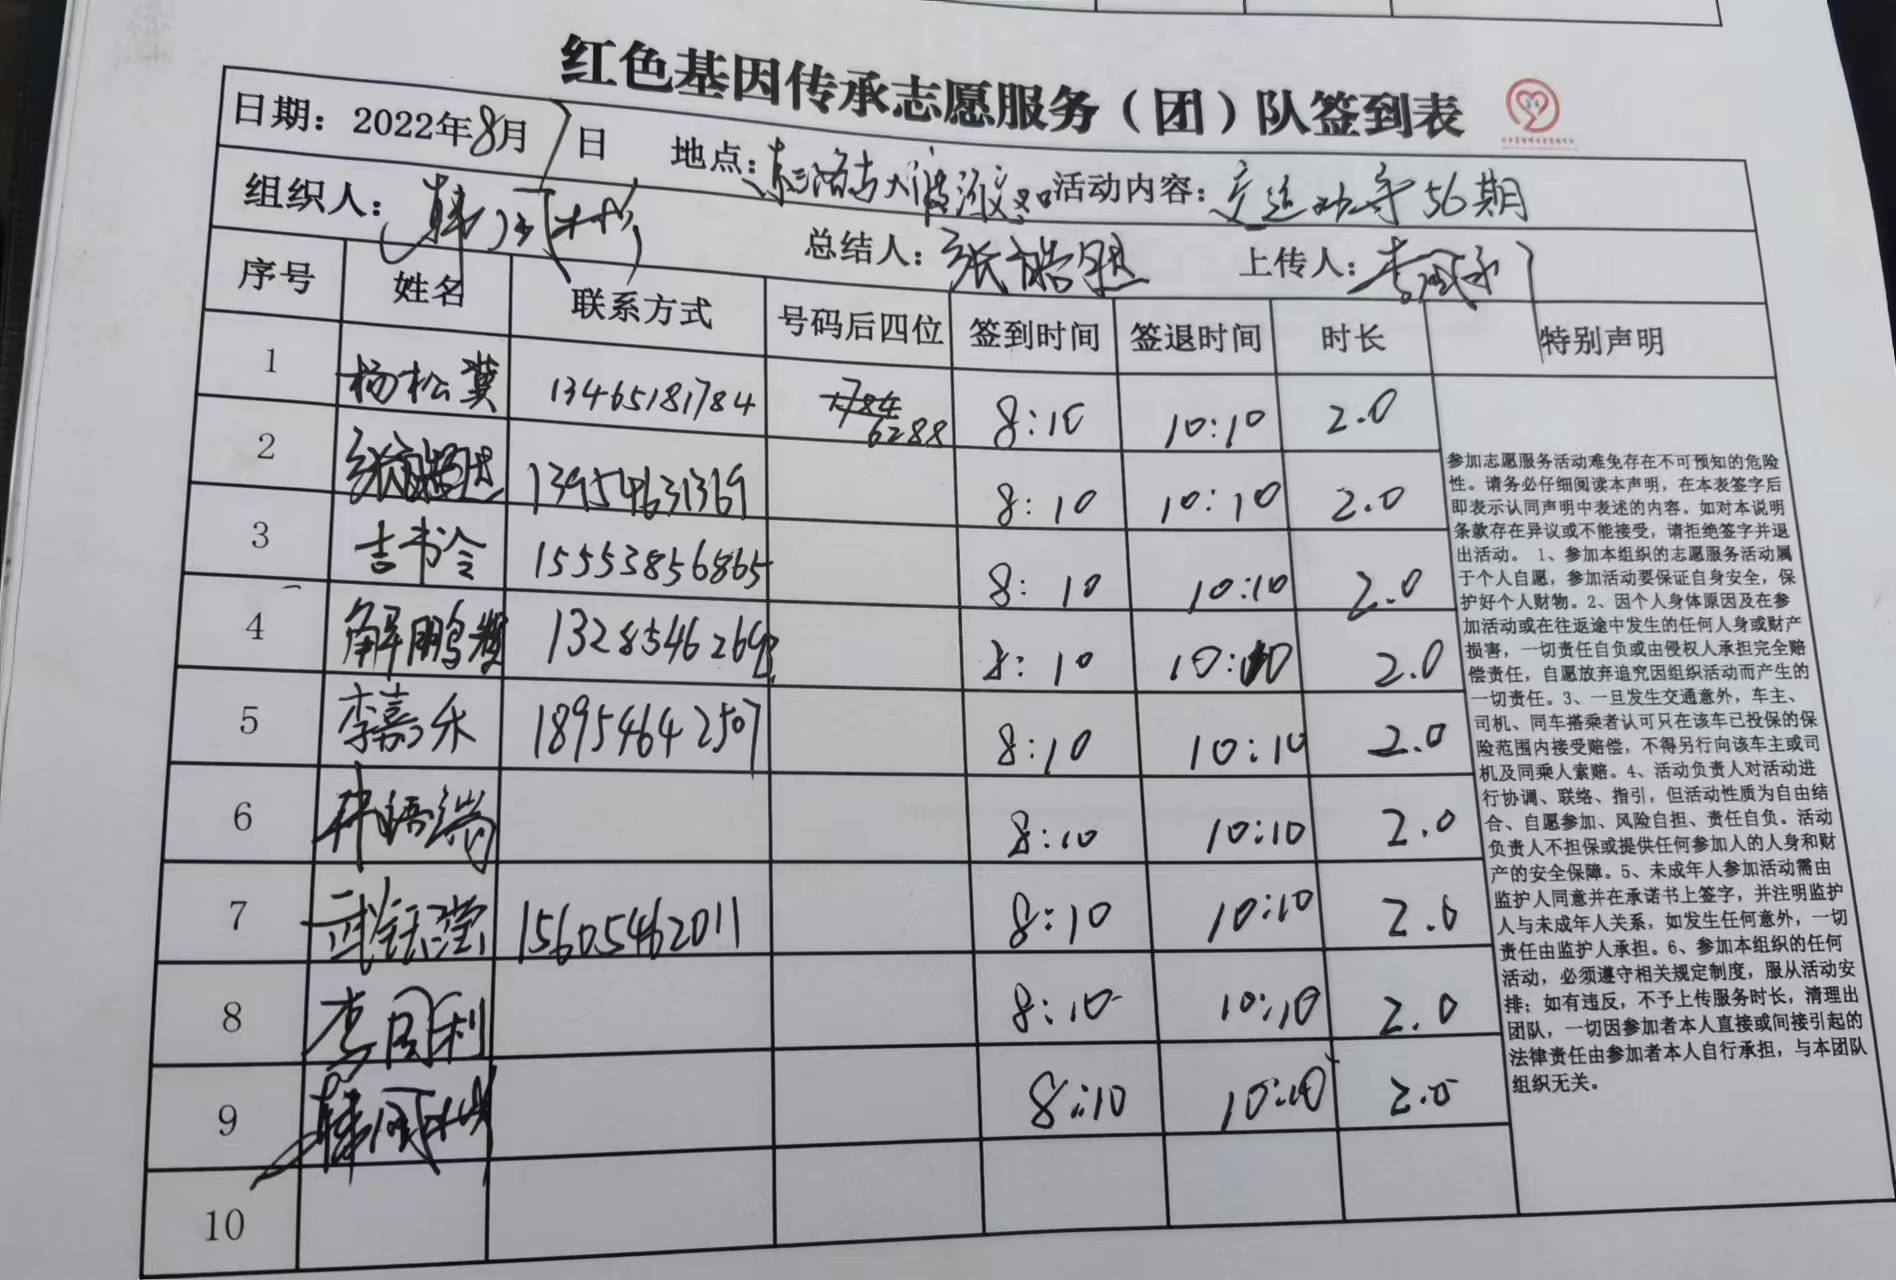 红色基因传承志愿服务（团）队签到表
日期：2022年8月7日 地点： 活动内容：56期
组织人： 总结人：张皓 上传人：李
序号 姓名 联系方式 号码后四位 签到时间 签退时间 时长 特别声明
1 杨松 13465181784 1784 6288 8:10 10:10 2.0
2 张 13954631369 8:10 10:10 2.0
3 吉书令 15553856865 8:10 10:10 2.0
4 解鹏 1328546269 8:10 10:10 2.0
5 李嘉禾 18954642507 8:10 10:10 2.0
6 林语 8:10 10:10 2.0
7 武钰滢 15605462011 8:10 10:10 2.0
8 李风利 8:10 10:10 2.0
9 韩风 8:10 10:10 2.0
10
参加志愿服务活动难免存在不可预知的危险
性。请务必仔细阅读本声明，在本表签字后
即表示认同声明中表述的内容。如对本说明
条款存在异议或不能接受，请拒绝签字并退
出活动。 1、参加本组织的志愿服务活动属
于个人自愿，参加活动要保证自身安全，保
护好个人财物。2、因个人身体原因及在参
加活动或在往返途中发生的任何人身或财产
损害，一切责任自负或由侵权人承担完全赔
偿责任，自愿放弃追究因组织活动而产生的
一切责任。3、一旦发生交通意外，车主、
司机、同车搭乘者认可只在该车已投保的保
险范围内接受赔偿，不得另行向该车主或司
机及同乘人索赔。4、活动负责人对活动进
行协调、联络、指引，但活动性质为自由结
合、自愿参加、风险自担、责任自负。活动
负责人不担保或提供任何参加人的人身和财
产的安全保障。5、未成年人参加活动需由
监护人同意并在承诺书上签字，并注明监护
人与未成年人关系，如发生任何意外，一切
责任由监护人承担。6、参加本组织的任何
活动，必须遵守相关规定制度，服从活动安
排；如有违反，不予上传服务时长，清理出
团队，一切因参加者本人直接或间接引起的
法律责任由参加者本人自行承担，与本团队
组织无关。